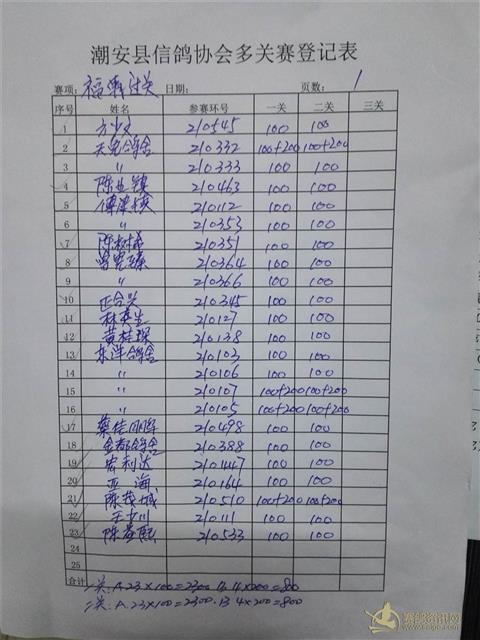 潮安县信鸽协会多关赛登记表
赛项: 福州过关 日期: 页数: 1
序号 姓名 参赛环号 一关 二关 三关
1 方少文 210545 100 100
2 天宠鸽舍 210332 100+200 100+200
3 〃 210333 100 100
4 陈 镇 210463 100 100
5 210112 100 100
6 〃 210353 100 100
7 陈树 210351 100 100
8 曾宪臻 210364 100 100
9 〃 210366 100 100
10 正合兴 210345 100 100
11 林英生 210127 100 100
12 黄桂琛 210138 100 100
13 东洋鸽舍 210103 100 100
14 〃 210106 100 100
15 〃 210107 100+200 100+200
16 〃 210105 100+200 100+200
17 蔡佳 210498 100 100
18 金都鸽舍 210388 100 100
19 宏利达 210447 100 100
20 亚海 210164 100 100
21 陈茂城 210510 100+200 100+200
22 210111 100 100
23 陈 熙 210533 100 100
24
25
合计 1关: A.23×100=2300 B 4×200=800
2关: A.23×100=2300. B 4×200=800
赛鸽资讯网